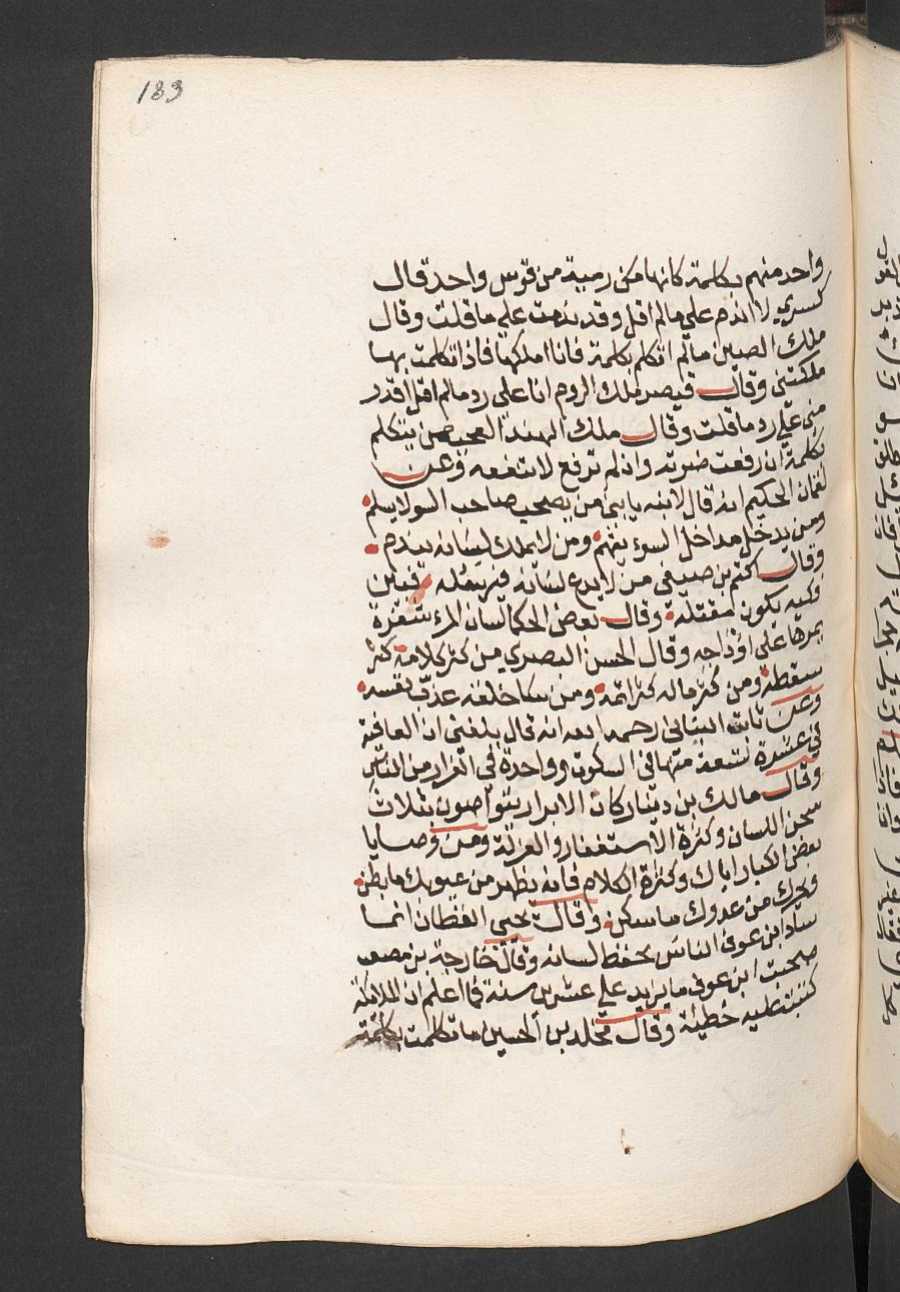 183
واحد منهم بكلمة كانها مكن رمية من قوس واحد قال
كسري لا اندم علي مالم اقل وقد ندمت علي ما قلت وقال
ملك الصين مالم اتكلم بكلمة فانا املكها فاذا تكلمت بها
ملكتني وقال قيصر ملك الروم انا على رد مالم اقل اقدر
مني علي رد ما قلت وقال ملك الهند العجب ممن يتكلم
بكلمة ان رفعت ضرته وان لم ترفع لا تنفعه وعن
لقمان الحكيم انه قال لابنه يا بني من يصحب صاحب السو لا يسلم
ومن يدخل مداخل السوء يتهم ومن لا يملك لسانه يندم
وقال اكثم بن صيفي مقتل
فكيه يكون مقتله وقال بعض الحكما لسان المرء شفرة
يمرها على اوداجه وقال الحسن البصري من كثر كلامه كثر
سقطه ومن كثر ماله كثر اثمه ومن سا خلقه عذب نفسه
وعن ثابت البناني رحمه الله انه قال بلغني ان العافية
في عشرة تسعة منها في السكوت وواحدة في الفرار من الناس
وقال مالك بن دينار كان الابرار يتواصون بثلاث
سجن اللسان وكثرة الاستغفار والعزلة ومن وصايا
بعض الكبار اياك وكثرة الكلام فانه يظهر من عيوبك ما بطن
ويحرك من عدوك ما سكن وقال يحيي القطان انما
ساد ابن عوف الناس بحفظ لسانه وقال خارجة بن مصعب
صحبت ابن عوف ما يزيد علي عشرين سنة فما اعلم ان الملائكة
كتبت عليه خطيئة وقال مخلد بن الحسين ما تكلمت بكلمة